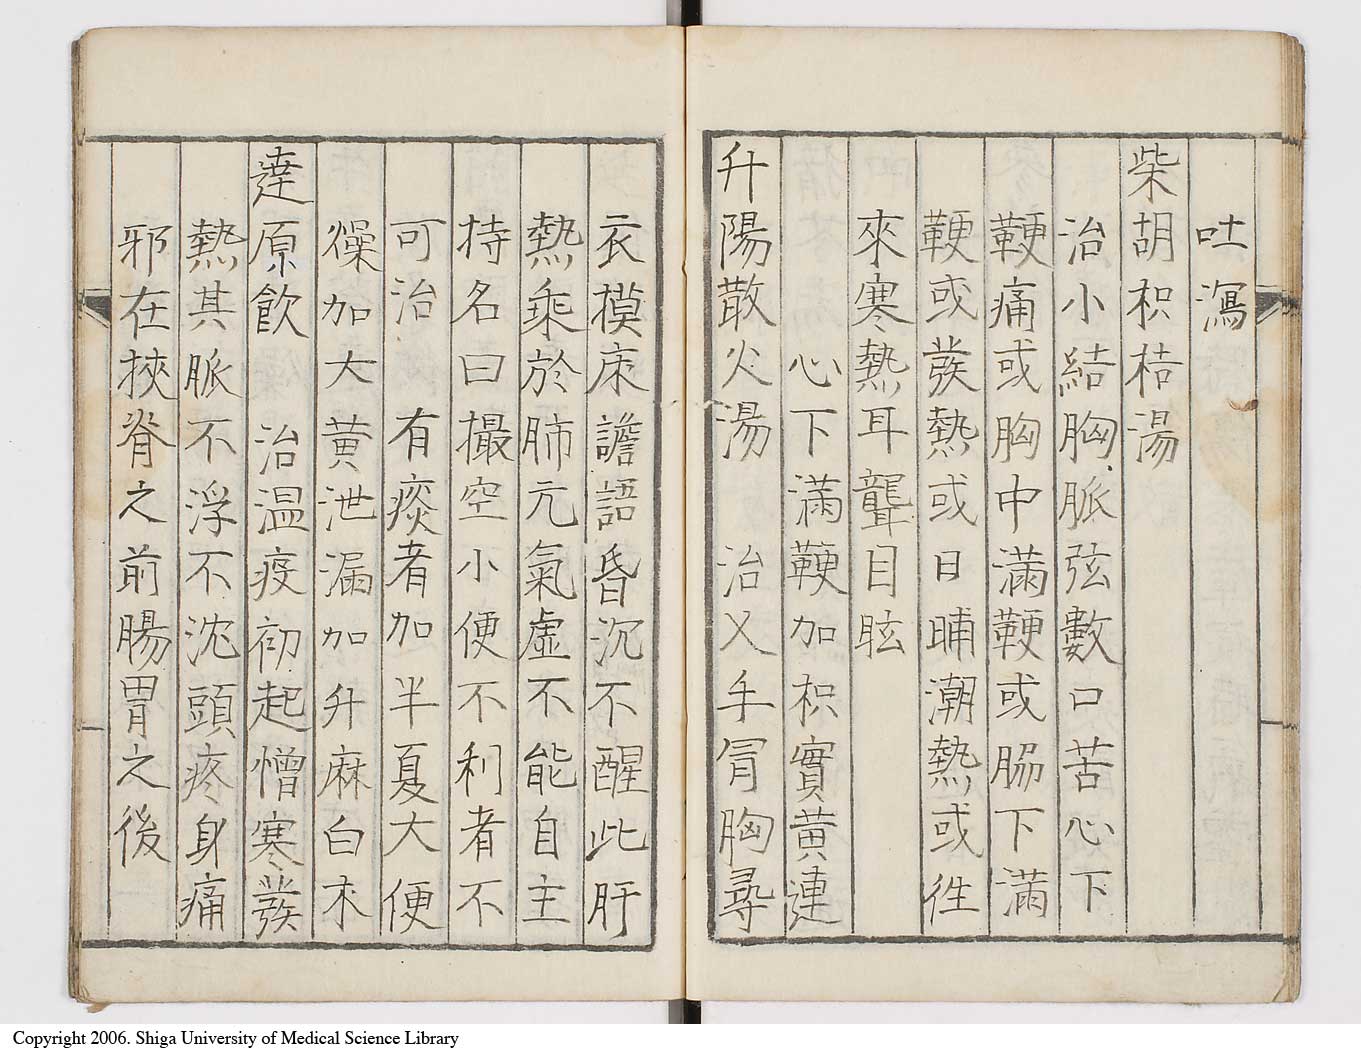 吐瀉
柴胡枳桔湯
治小結胸脈弦數口苦心下
鞕痛或胸中滿鞕或脇下滿
鞕或発熱或日晡潮熱或徃
來寒熱耳聾目眩
心下滿鞕加枳實黃連
升陽散火湯　治乂手冐胸尋
衣摸床譫語昏沉不醒此肝
熱乘於肺元氣虛不能自主
持名曰撮空小便不利者不
可治　有痰者加半夏大便
燥加大黃泄漏加升麻白朮
達原飲　治温疫初起憎寒發
熱其脈不浮不沈頭疼身痛
邪在挾脊之前腸胃之後
Copyright 2006. Shiga University of Medical Science Library